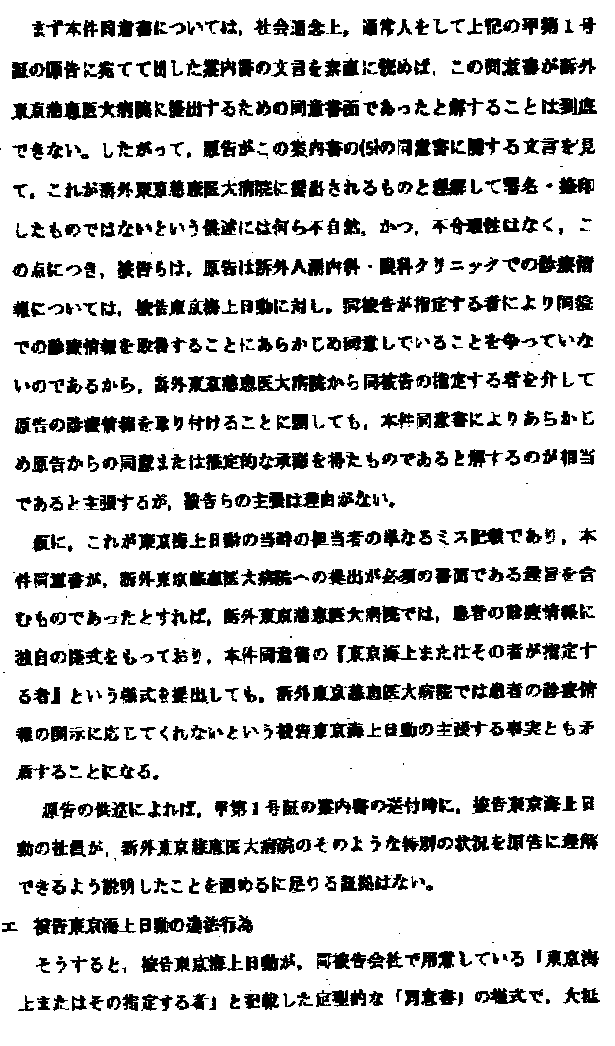 まず本件同意書については，社会通念上，通常人をして上記の甲第１号
証の原告に宛てて出した案内書の文言を素直に読めば，この同意書が訴外
東京慈恵医大病院に提出するための同意書面であったと解することは到底
できない。したがって，原告がこの案内書の(5)の同意書に関する文言を見
て，これが訴外東京慈恵医大病院に提出されるものと理解して署名・捺印
したものではないという供述には何ら不自然，かつ，不合理性はなく，こ
の点につき，被告らは，原告は訴外人潮内科・眼科クリニックでの診療情
報については，被告東京海上日動に対し，同被告が指定する者により同院
での診療情報を取得することにあらかじめ同意していることを争っていな
いのであるから，訴外東京慈恵医大病院から同被告の指定する者を介して
原告の診療情報を取り付けることに関しても，本件同意書によりあらかじ
め原告からの同意または推定的な承諾を得たものであると解するのが相当
であると主張するが，被告らの主張は理由がない。
仮に，これが東京海上日動の当時の担当者の単なるミス記載であり，本
件同意書が，訴外東京慈恵医大病院への提出が必須の書面である趣旨を含
むものであったとすれば，訴外東京慈恵医大病院では，患者の診療情報に
独自の様式をもっており，本件同意書の『東京海上またはその者が指定す
る者』という様式を提出しても，訴外東京慈恵医大病院では患者の診療情
報の開示に応じてくれないという被告東京海上日動の主張する事実とも矛
盾することになる。
原告の供述によれば，甲第１号証の案内書の送付時に，被告東京海上日
動の社員が，訴外東京慈恵医大病院のそのような特別の状況を原告に理解
できるよう説明したことを認めるに足りる証拠はない。
エ 被告東京海上日動の違法行為
そうすると，被告東京海上日動が，同被告会社で用意している「東京海
上またはその指定する者」と記載した定型的な「同意書」の様式で，大抵